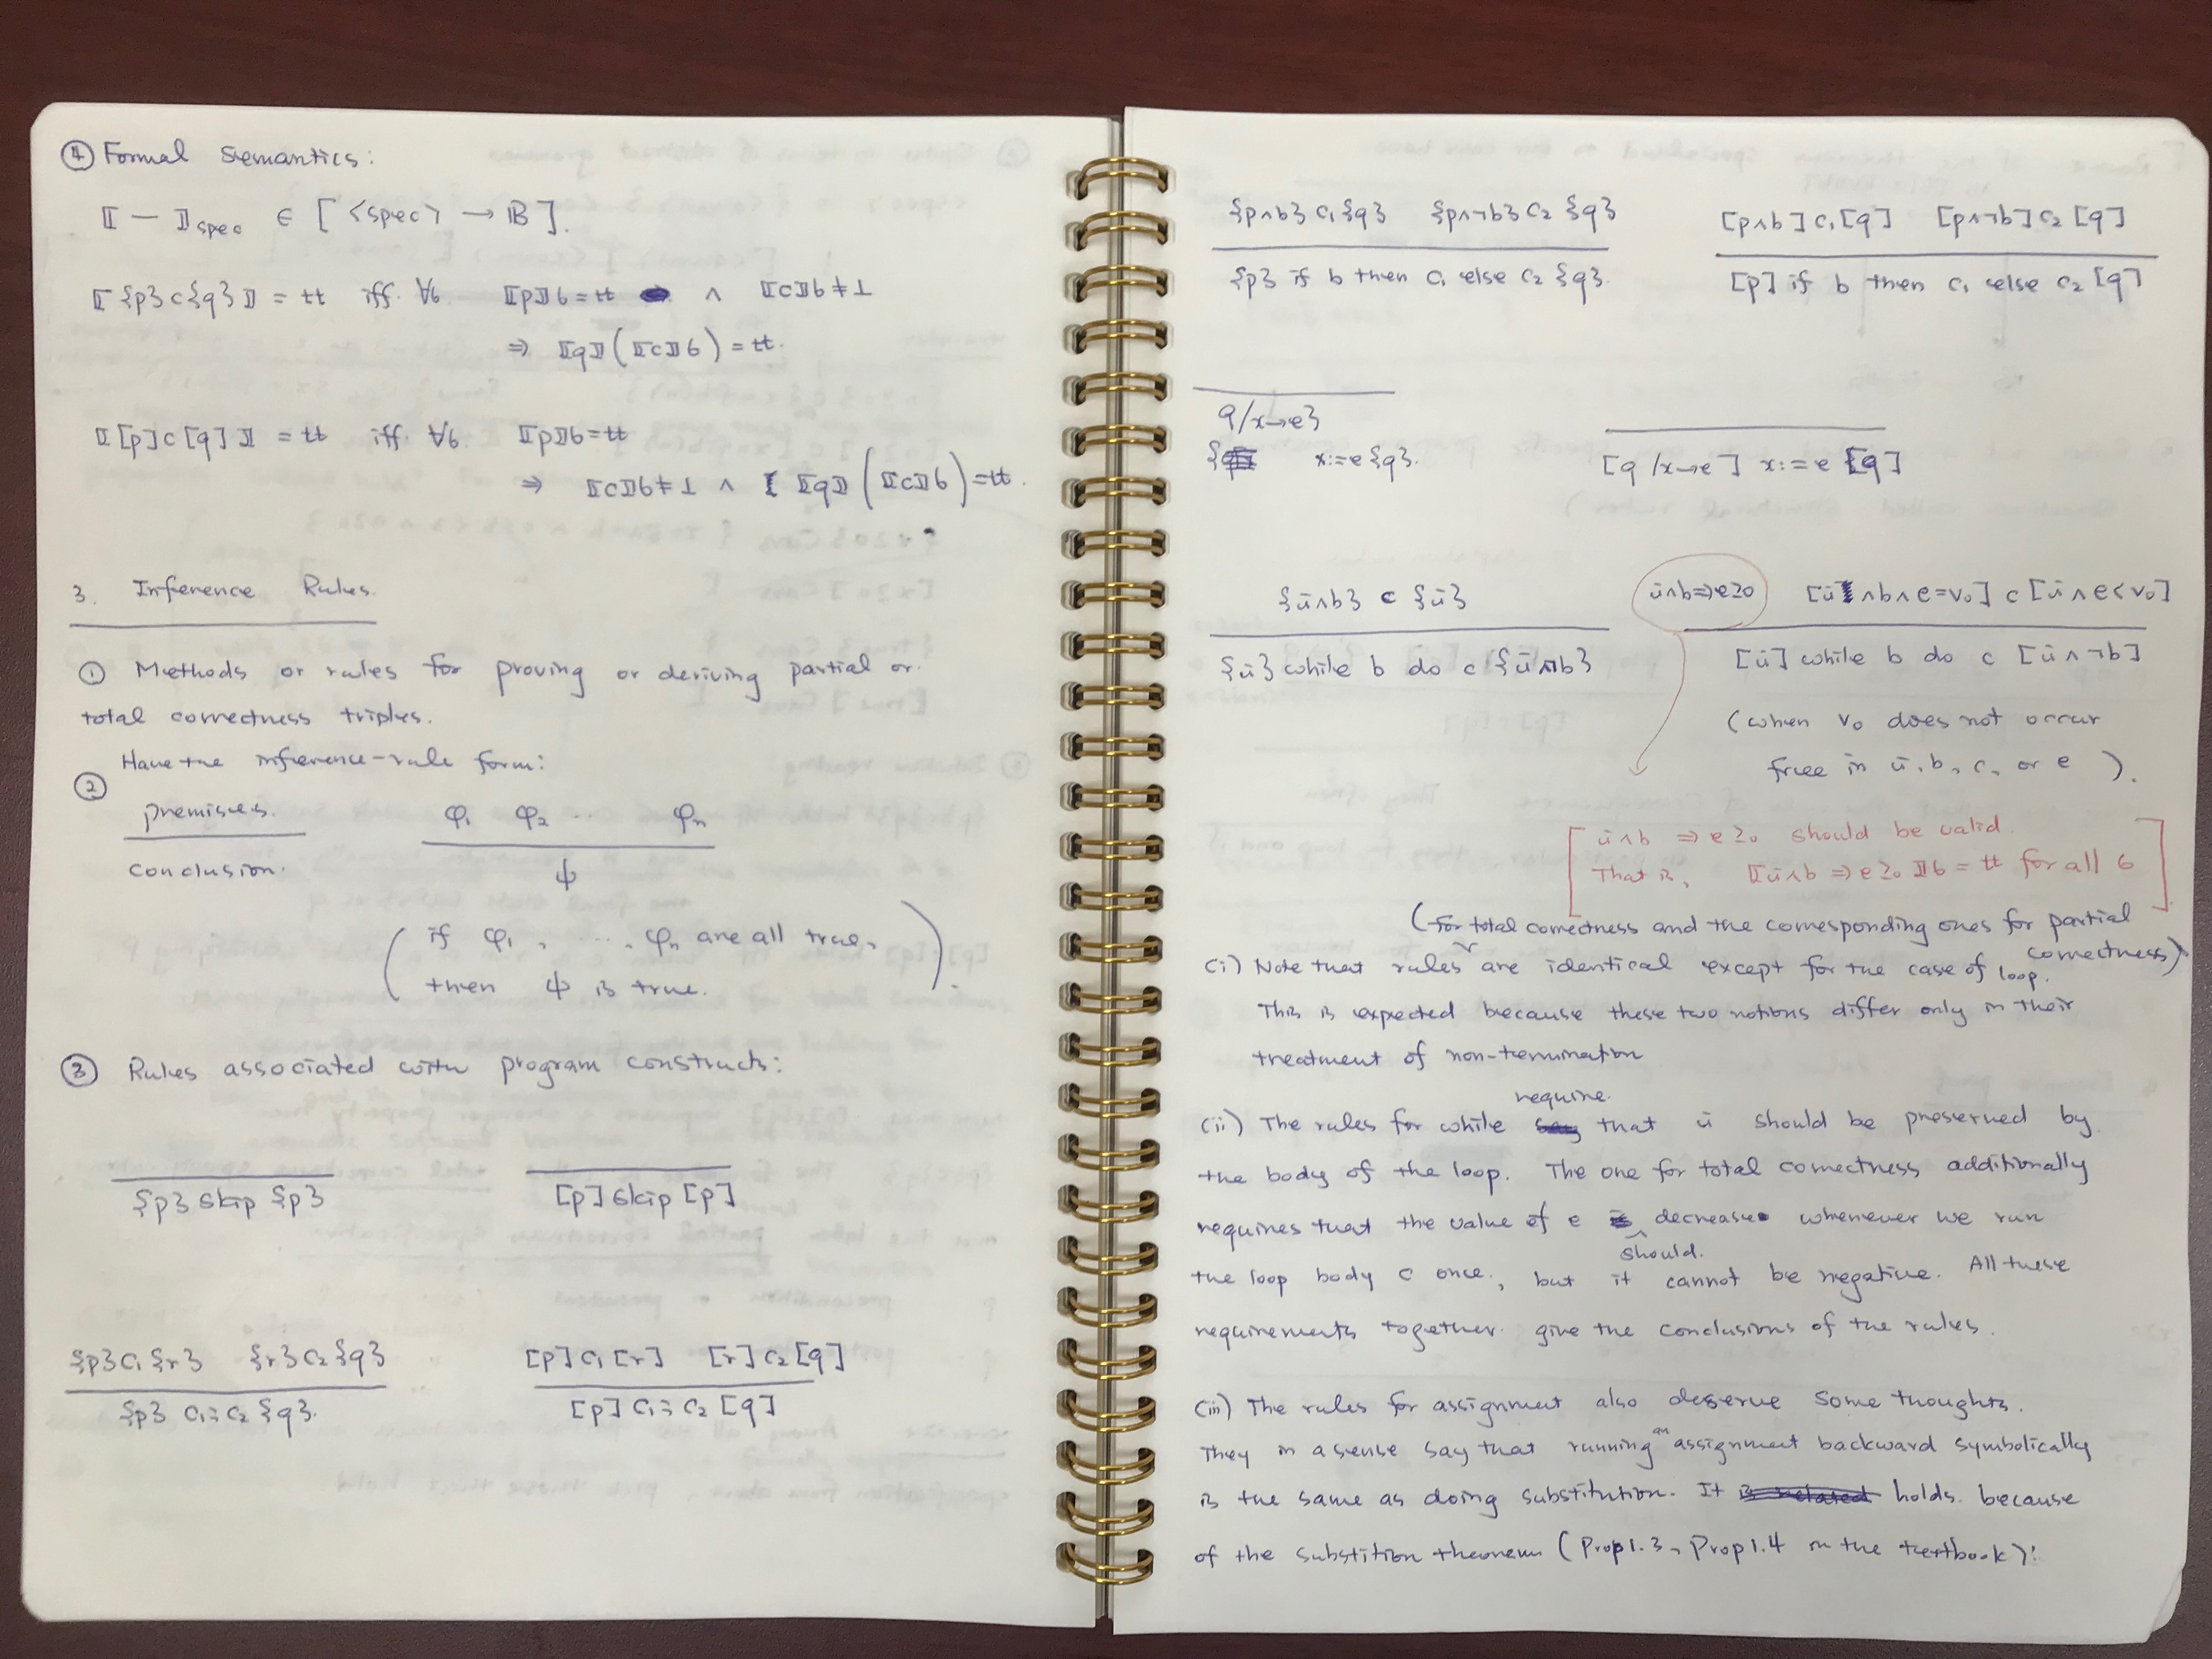 ④ Formal Semantics:
⟦ — ⟧spec ∈ [ <spec> → 𝔹 ].
⟦ {p} c {q} ⟧ = tt iff. ∀σ. ⟦p⟧σ = tt ∧ ⟦c⟧σ ≠ ⊥
⇒ ⟦q⟧(⟦c⟧σ) = tt.
⟦ [p] c [q] ⟧ = tt iff. ∀σ. ⟦p⟧σ = tt
⇒ ⟦c⟧σ ≠ ⊥ ∧ ⟦q⟧(⟦c⟧σ) = tt.
3. Inference Rules.
① Methods or rules for proving or deriving partial or
total correctness triples.
② Have the inference-rule form:
premises. φ₁ φ₂ ·· φₙ
conclusion. ψ
( if φ₁, ···, φₙ are all true,
then ψ is true. ).
③ Rules associated with program constructs:
{p} skip {p} [p] skip [p]
{p} c₁ {r} {r} c₂ {q} [p] c₁ [r] [r] c₂ [q]
{p} c₁; c₂ {q}. [p] c₁; c₂ [q]
{p∧b} c₁ {q} {p∧¬b} c₂ {q} [p∧b] c₁ [q] [p∧¬b] c₂ [q]
{p} if b then c₁ else c₂ {q}. [p] if b then c₁ else c₂ [q]
q/x→e}
{ x:=e {q}. [q/x→e] x:=e [q]
{ū∧b} c {ū} ū∧b⇒e≥0 [ū∧b∧e=v₀] c [ū∧e<v₀]
{ū} while b do c {ū∧¬b} [ū] while b do c [ū∧¬b]
(when v₀ does not occur
free in ū, b, c, or e ).
[ ū∧b ⇒ e≥0 should be valid.
That is, ⟦ū∧b ⇒ e≥0⟧σ = tt for all σ ]
(for total correctness and the corresponding ones for partial
correctness)
(i) Note that rules are identical except for the case of loop.
This is expected because these two notions differ only in their
treatment of non-termination
require.
(ii) The rules for while say that ū should be preserved by
the body of the loop. The one for total correctness additionally
requires that the value of e is decrease whenever we run
should.
the loop body c once, but it cannot be negative. All these
requirements together give the conclusions of the rules.
(iii) The rules for assignment also deserve some thoughts.
They in a sense say that running an assignment backward symbolically
is the same as doing substitution. It is related holds because
of the substition theorem (Prop 1.3, Prop 1.4 in the textbook):